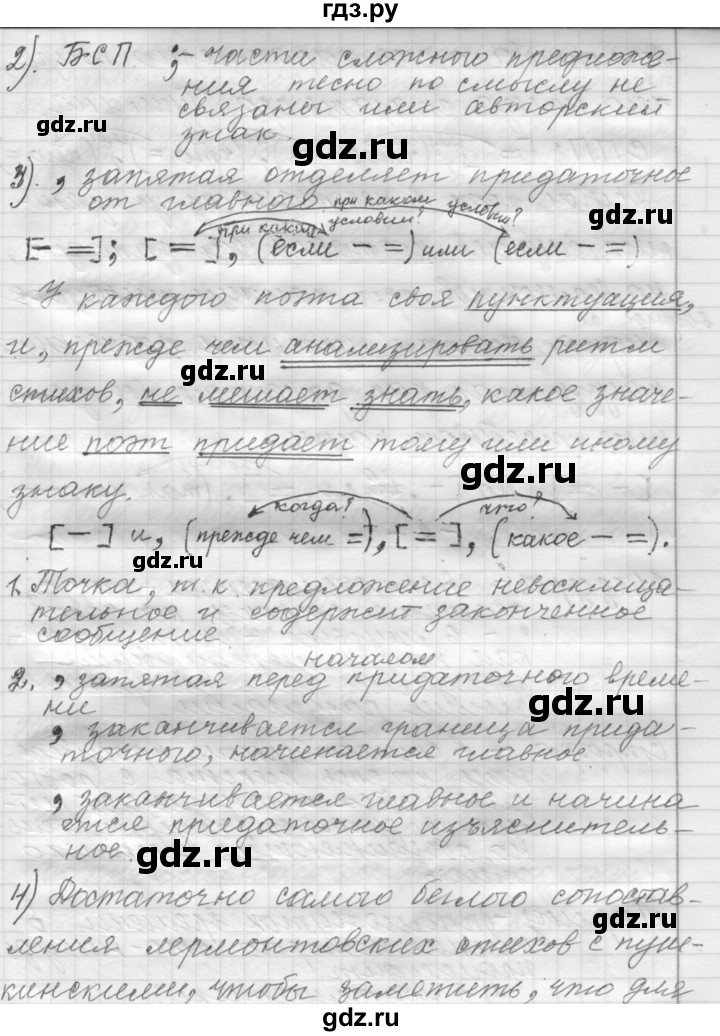 гдз.ру
2). БСП ; – части сложного предложе-
ния тесно по смыслу не
связаны или авторский
знак.
gdz.ru
gdz.ru
3). , запятая отделяет придаточное
от главного
при каком условии?
при каком условии?
[– =]; [ = ], (если – =) или (если – =)
У каждого поэта своя пунктуация,
и, прежде чем анализировать ритм
gdz.ru
стихов, не мешает знать, какое значе-
ние поэт придает тому или иному
знаку.
gdz.ru
когда? что?
[ – ] и, (прежде чем =), [ = ], (какое – =).
1. Точка, т.к. предложение невосклица-
gdz.ru
тельное и содержит законченное
сообщение
началом
2. , запятая перед придаточного време-
ни
gdz.ru
, заканчивается граница прида-
точного, начинается главное
, заканчивается главное и начина
ется придаточное изъяснитель-
ное.
gdz.ru
4) Достаточно самого беглого сопостав-
gdz.ru
ления лермонтовских стихов с пуш-
кинскими, чтобы заметить, что для
gdz.ru